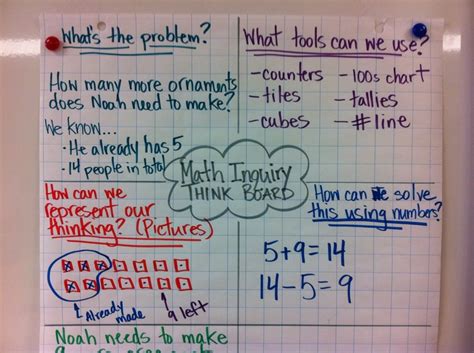 What's the problem?
How many more ornaments
does Noah need to make?
We know...
• He already has 5
• 14 people in total
What tools can we use?
- counters
- tiles
- cubes
- 100s chart
- tallies
- # line
Math Inquiry
THINK BOARD
How can we
represent our
thinking? (Pictures)
Already
made
9 left
How can we solve
this using numbers?
5+9=14
14-5=9
Noah needs to make